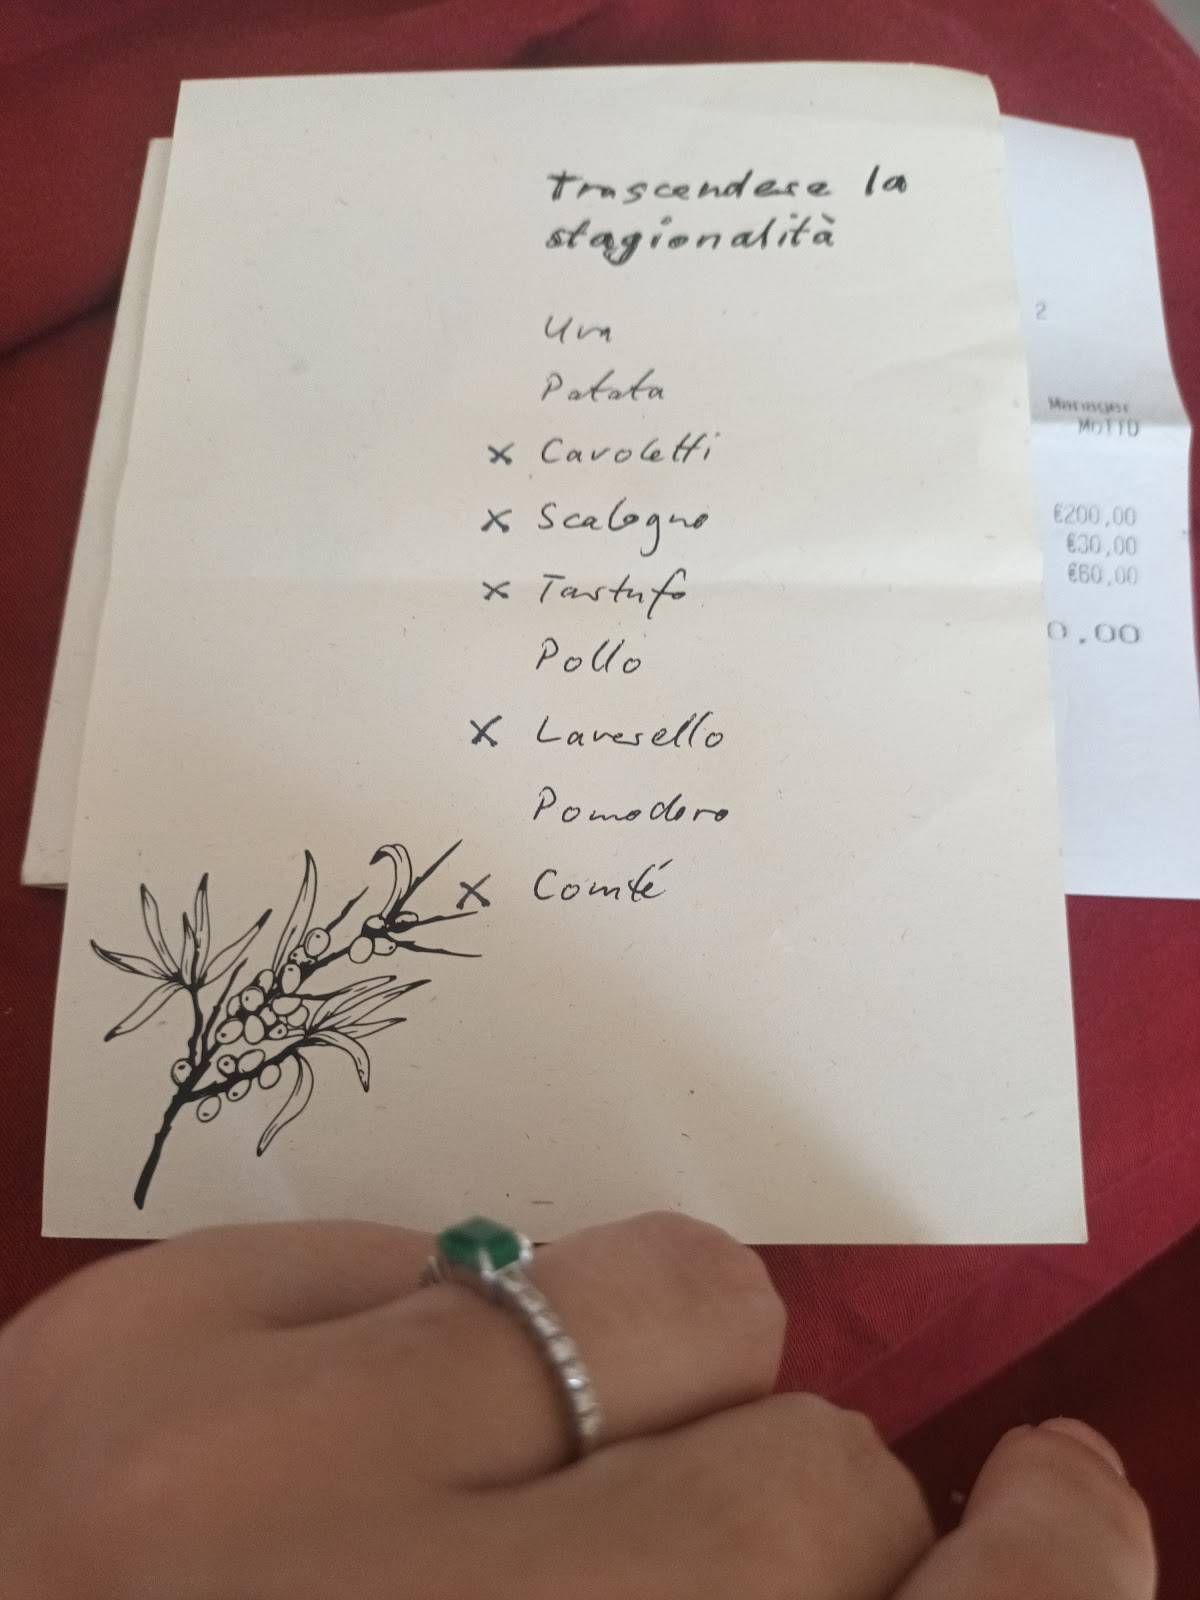 Trascendere la
stagionalità
Uva
Patata
x Cavoletti
x Scalogno
x Tartufo
Pollo
x Lavarello
Pomodoro
x Comté
2
Manager
MOTTO
€200,00
€30,00
€60,00
0,00